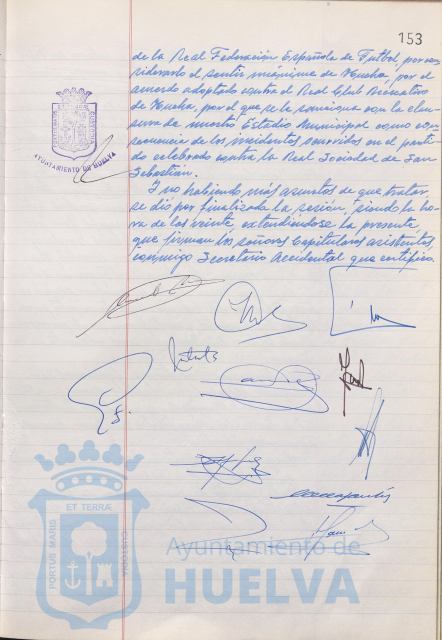 153
de la Real Federación Española de Futbol, por con
siderarlo el sentir unánime de Huelva, por el
acuerdo adoptado contra el Real Club Recreativo
de Huelva, por el que se le sanciona con la clau
sura de nuestro Estadio Municipal como con
secuencia de los incidentes ocurridos en el parti
do celebrado contra la Real Sociedad de San
Sebastián.
Y no habiendo más asuntos de que tratar
se dió por finalizada la sesión, siendo la ho
ra de las veinte extendiéndose la presente
que firman los señores Capitulares asistentes,
conmigo Secretario Accidental que certifico.
AYUNTAMIENTO DE HUELVA
PORTUS MARIS
ET TERRÆ
CUSTODIA
Ayuntamiento de
HUELVA